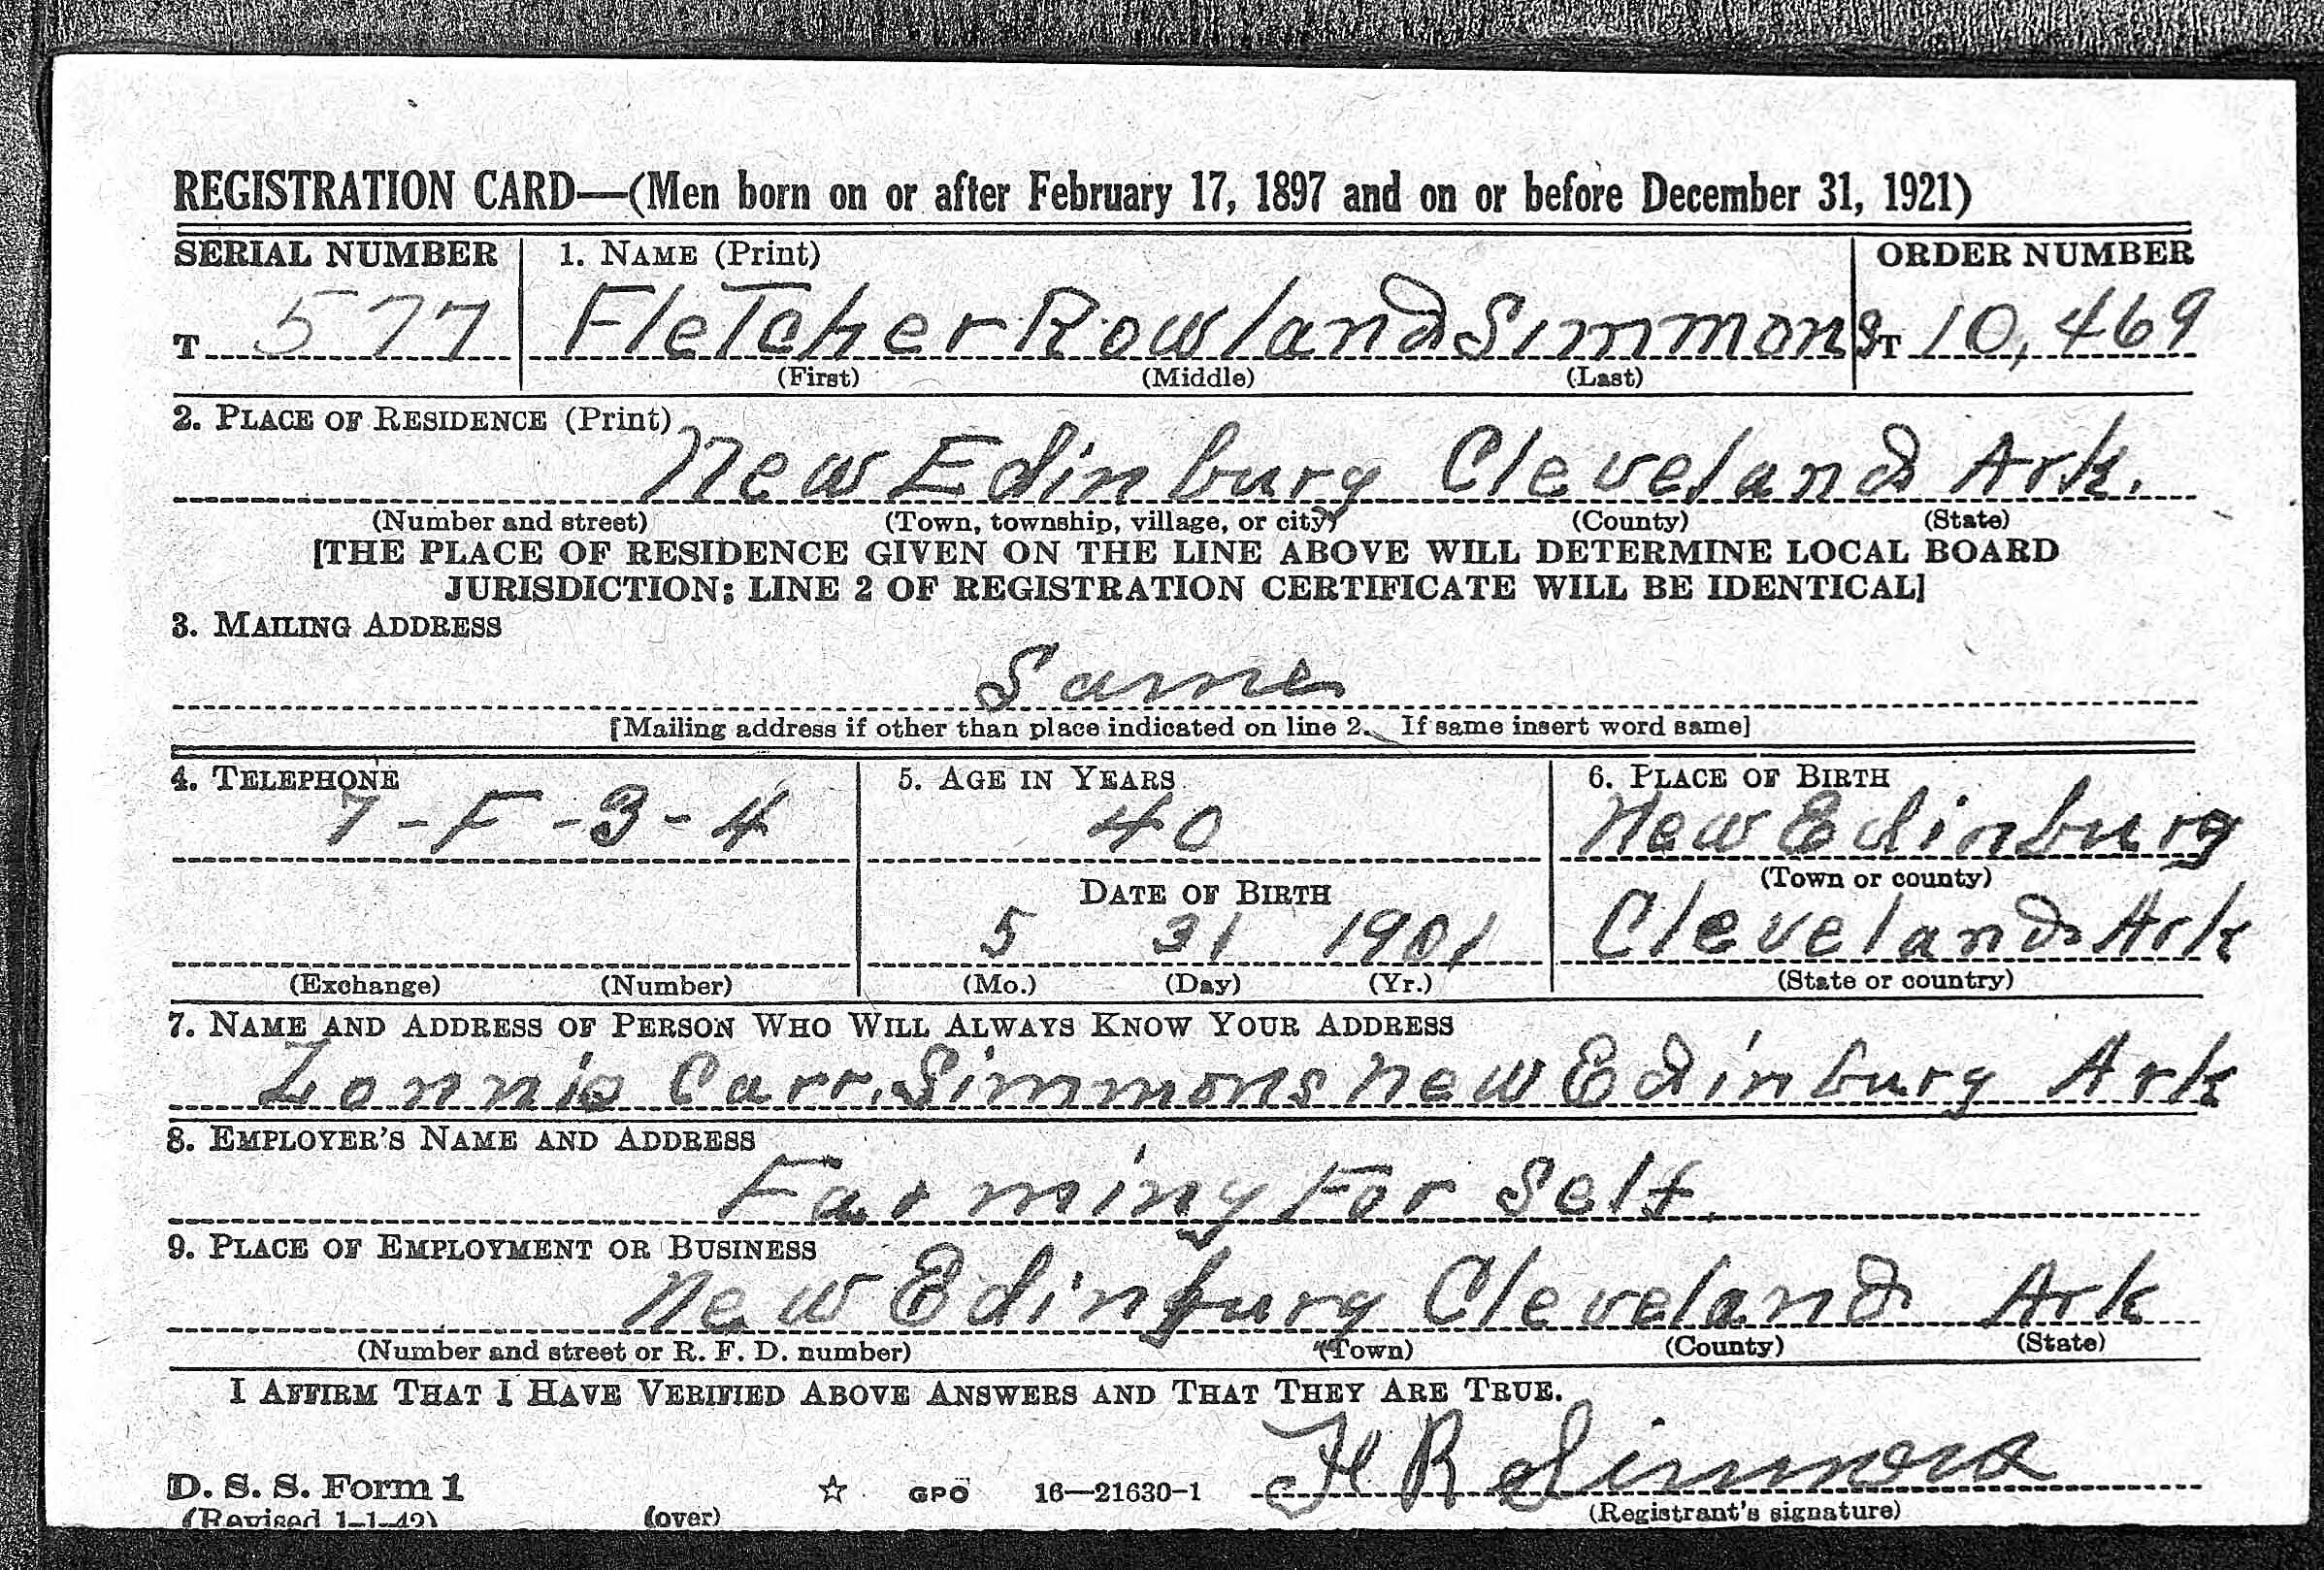 REGISTRATION CARD—(Men born on or after February 17, 1897 and on or before December 31, 1921)
SERIAL NUMBER 1. NAME (Print) ORDER NUMBER
T 577 Fletcher Rowland Simmons T 10,469
(First) (Middle) (Last)
2. PLACE OF RESIDENCE (Print)
New Edinburg Cleveland Ark.
(Number and street) (Town, township, village, or city) (County) (State)
[THE PLACE OF RESIDENCE GIVEN ON THE LINE ABOVE WILL DETERMINE LOCAL BOARD
JURISDICTION; LINE 2 OF REGISTRATION CERTIFICATE WILL BE IDENTICAL]
3. MAILING ADDRESS
Same
[Mailing address if other than place indicated on line 2. If same insert word same]
4. TELEPHONE 5. AGE IN YEARS 6. PLACE OF BIRTH
7-F-3-4 40 New Edinburg
DATE OF BIRTH (Town or county)
5 31 1901 Cleveland Ark
(Exchange) (Number) (Mo.) (Day) (Yr.) (State or country)
7. NAME AND ADDRESS OF PERSON WHO WILL ALWAYS KNOW YOUR ADDRESS
Lonnie Carr. Simmons New Edinburg Ark
8. EMPLOYER'S NAME AND ADDRESS
Farming For Self.
9. PLACE OF EMPLOYMENT OR BUSINESS
New Edinburg Cleveland Ark
(Number and street or R. F. D. number) (Town) (County) (State)
I AFFIRM THAT I HAVE VERIFIED ABOVE ANSWERS AND THAT THEY ARE TRUE.
D. S. S. Form 1 ☆ GPO 16—21630-1 F R Simmons
(Revised 1-1-42) (over) (Registrant's signature)